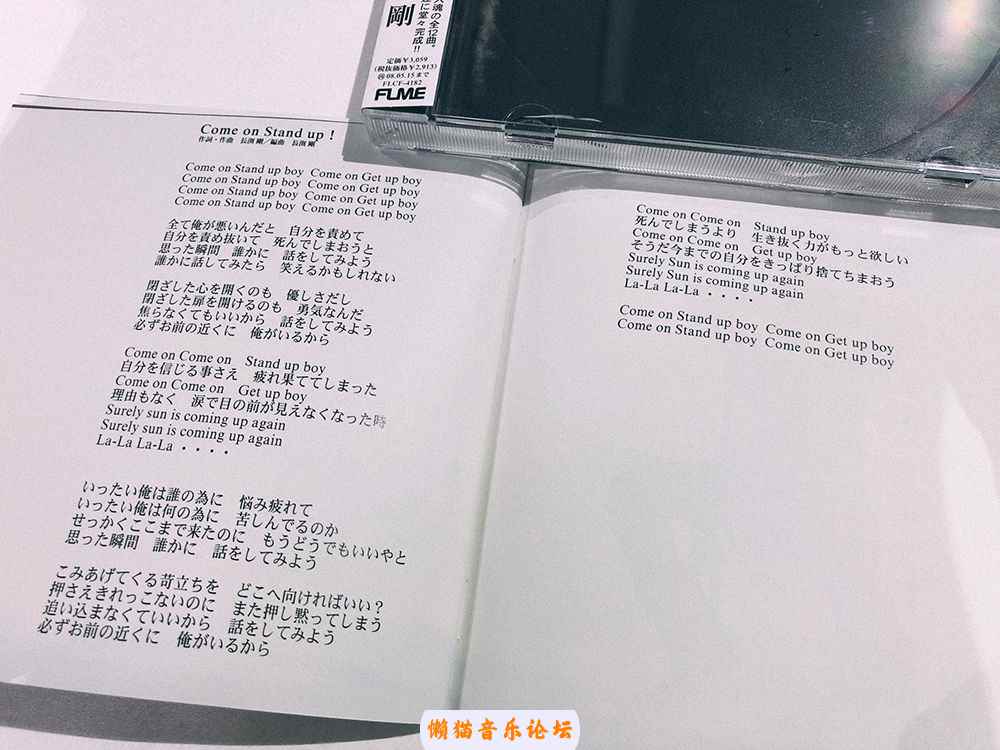 魂の全12曲。
に堂々完成!!
剛
定価¥3,059
(税抜価格¥2,913)
08.05.15まで
FLCF-4182
FLME
Come on Stand up !
作詞・作曲 長渕 剛／編曲 長渕 剛
Come on Stand up boy Come on Get up boy
Come on Stand up boy Come on Get up boy
Come on Stand up boy Come on Get up boy
Come on Stand up boy Come on Get up boy
全て俺が悪いんだと 自分を責めて
自分を責め抜いて 死んでしまおうと
思った瞬間 誰かに 話をしてみよう
誰かに話してみたら 笑えるかもしれない
閉ざした心を開くのも 優しさだし
閉ざした扉を開けるのも 勇気なんだ
焦らなくてもいいから 話をしてみよう
必ずお前の近くに 俺がいるから
Come on Come on Stand up boy
自分を信じる事さえ 疲れ果ててしまった
Come on Come on Get up boy
理由もなく 涙で目の前が見えなくなった時
Surely sun is coming up again
Surely sun is coming up again
La-La La-La ・・・・
いったい俺は誰の為に 悩み疲れて
いったい俺は何の為に 苦しんでるのか
せっかくここまで来たのに もうどうでもいいやと
思った瞬間 誰かに 話をしてみよう
こみあげてくる苛立ちを どこへ向ければいい？
押さえきれっこないのに また押し黙ってしまう
追い込まなくていいから 話をしてみよう
必ずお前の近くに 俺がいるから
Come on Come on Stand up boy
死んでしまうより 生き抜く力がもっと欲しい
Come on Come on Get up boy
そうだ今までの自分をきっぱり捨てちまおう
Surely Sun is coming up again
Surely Sun is coming up again
La-La La-La ・・・・
Come on Stand up boy Come on Get up boy
Come on Stand up boy Come on Get up boy
懒猫音乐论坛